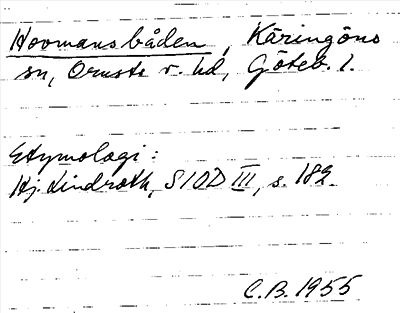 Hovmansbåden, Käringöns
sn, Orusts v. hd, Göteb. l.
Etymologi:
Hj. Lindroth, SIOD III, s. 182.
C.B. 1955